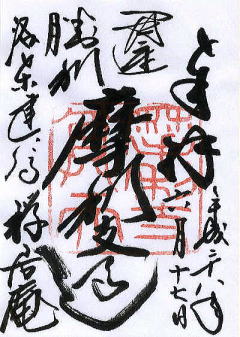 奉拝
平成二十八年
六月十七日
開運
勝利
摩利支天
洛東建仁寺 禅居庵